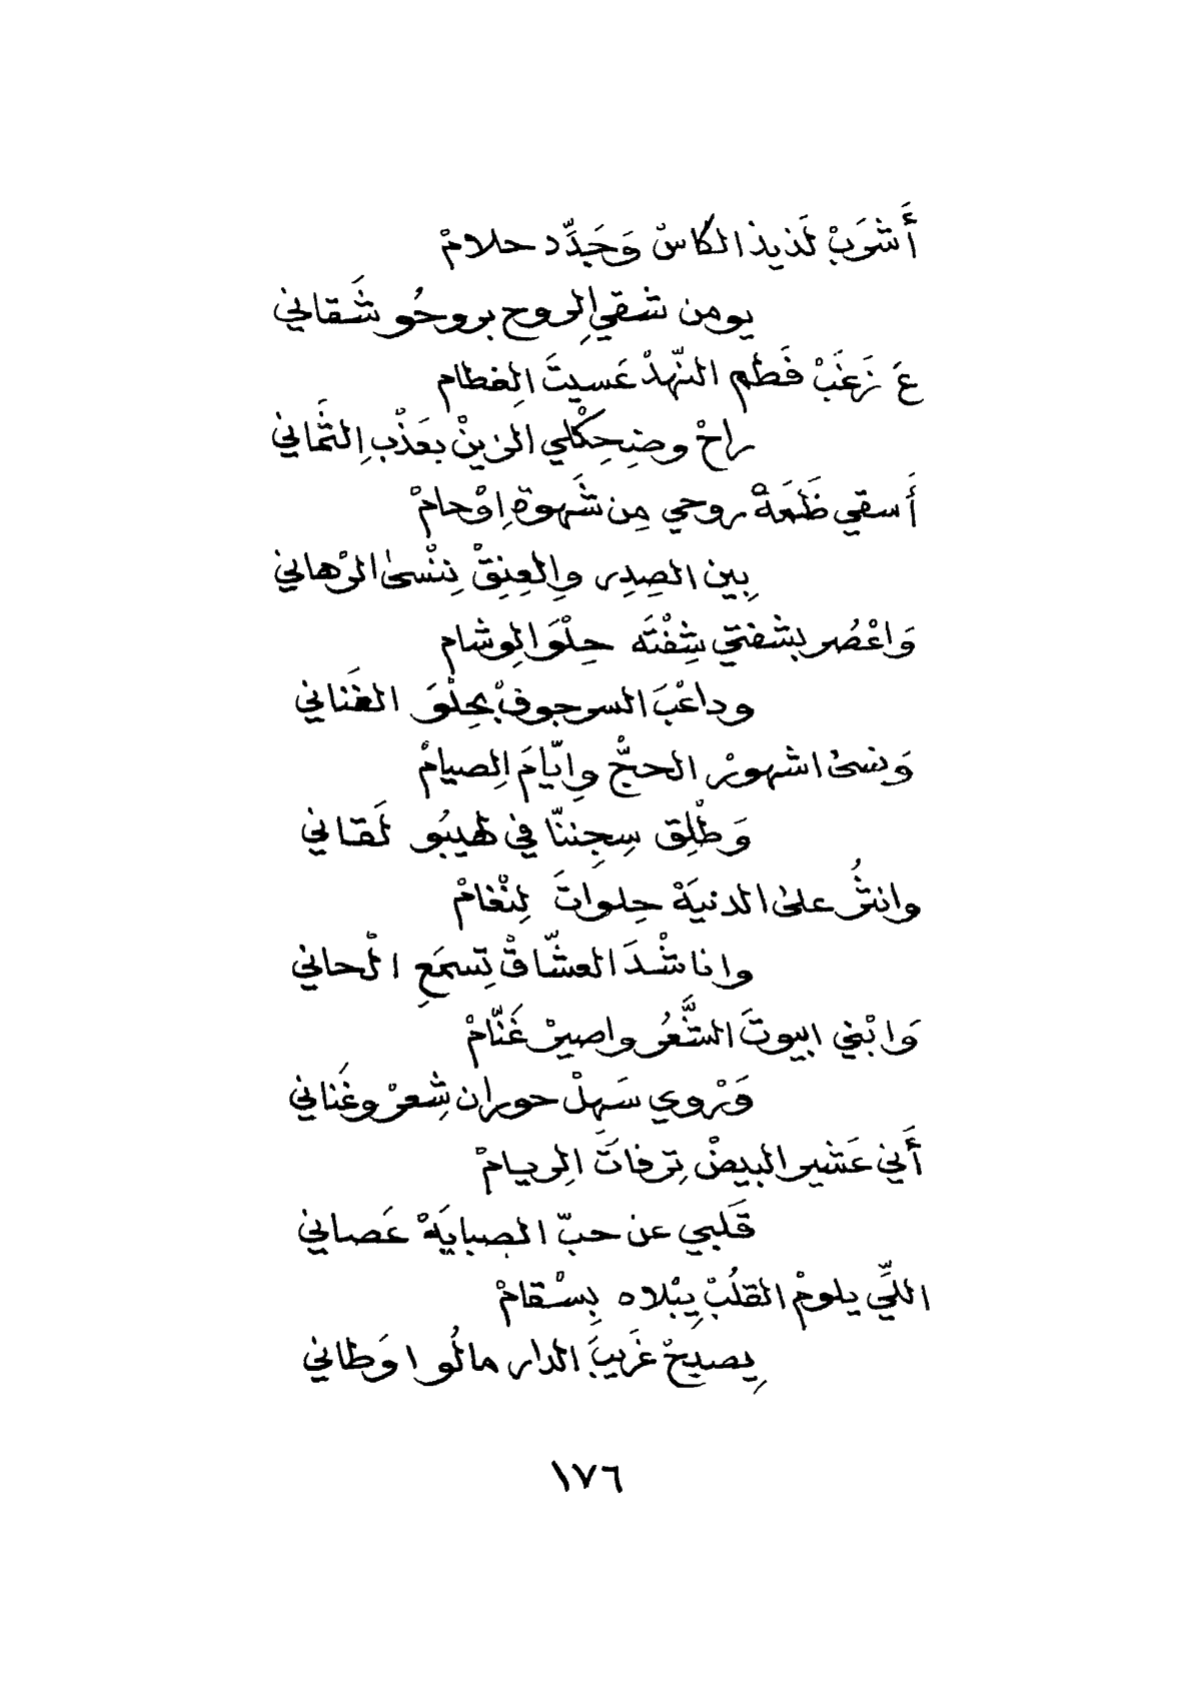 أَشرَبْ لَذيذ الكاسْ وَجَدِّد حلامْ
يومن شقيِ الروح بروحُو شَقاني
عَ زَغَبْ فَطم النّهدْ عَسيتَ الِفطام
راحْ وضِحِكْلي الزينْ بعَذْبِ الثَّماني
أَسقي ظَمَهْ روحي مِن شَهوة اِوْحامْ
بِين الصِدِر والِعِنِقْ نِنْسىٰ الرْهاني
وَاعْصُر بشفتي شِفْتَه حِلْوَ الِوشام
وداعْبَ السرجوفْ بحِلْوَ الغَناني
وَنسىٰ اشهورْ الحجّْ واِيّامَ الِصيامْ
وَطْلِق سِجِننّا في لهيبُو لَقاني
وانثُر علىٰ الدنيَهْ حِلواتَ لِنْغامْ
وانا شْدَ العشّاقْ تِسمَعِ الْحاني
وَابْني ابيوتَ الشَّعُر واصيرْ غَنّامْ
وَرْوي سَهلْ حوران شِعرْ وغَناني
أَني عَشير البيضْ تِرفاتَ الِريامْ
قَلبي عن حبّ الصبايَهْ عَصاني
اللِّي يلومْ القلُبْ يِبْلاه بِسْقامْ
يِصيحْ غَريبَ الدار مالُو اوَطاني
١٧٦